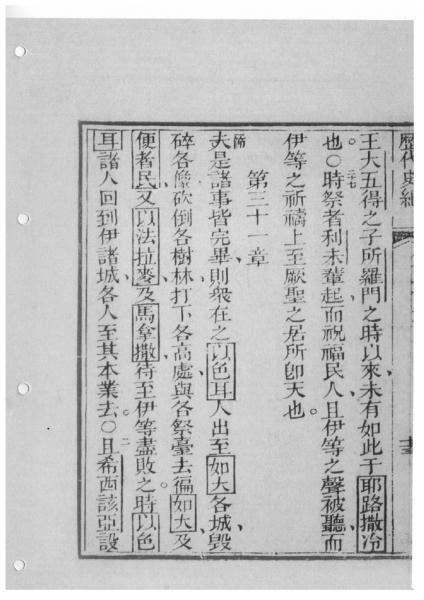 歷代史
王大五得之子所羅門之時以來未有如此于耶路撒冷
也。○二十七時祭者利未輩起而祝福民人且伊等之聲被聽而
伊等之祈禱上至厥聖之居所卽天也。
第三十一章
夫是諸事皆完畢則衆在之以色耳人出至如大各城毀
碎各像砍倒各樹林打下各高處與各祭臺去徧如大及
便者民又以法拉麥及馬拿撒待至伊等盡敗之時以色
耳諸人回到伊諸城各人至其本業去。○二且希西該亞設